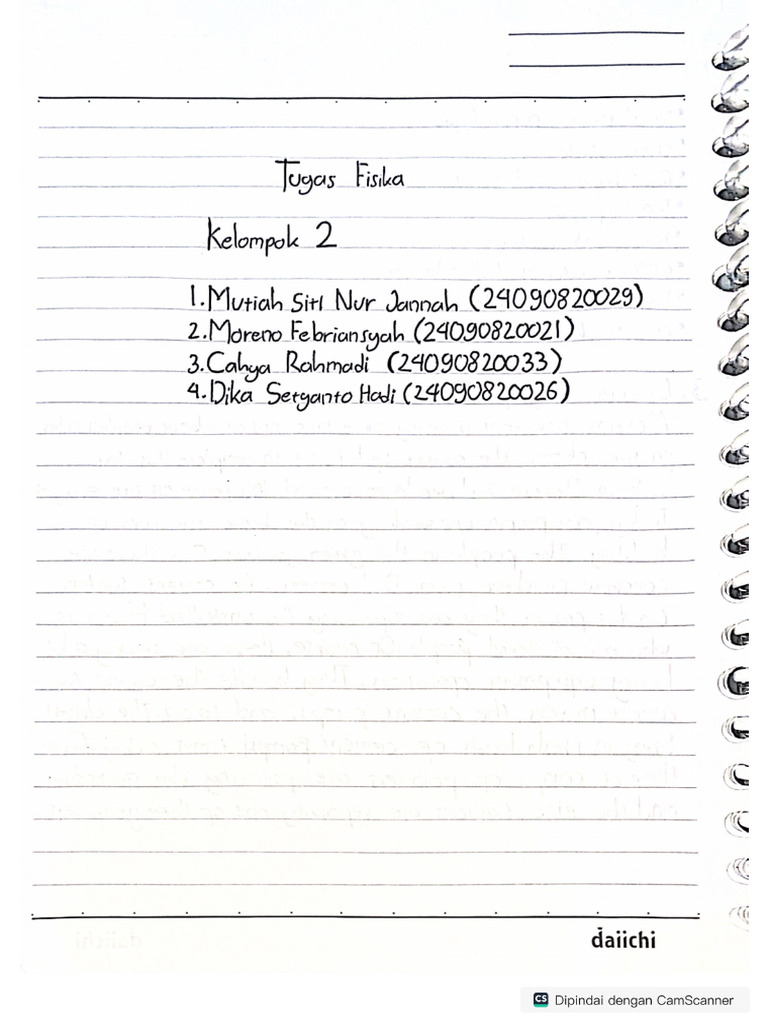 Tugas Fisika
Kelompok 2
1. Mutiah Siti Nur Jannah (24090820029)
2. Moreno Febriansyah (24090820021)
3. Cahya Rahmadi (24090820033)
4. Dika Setyanto Hadi (24090820026)
daiichi
CS Dipindai dengan CamScanner